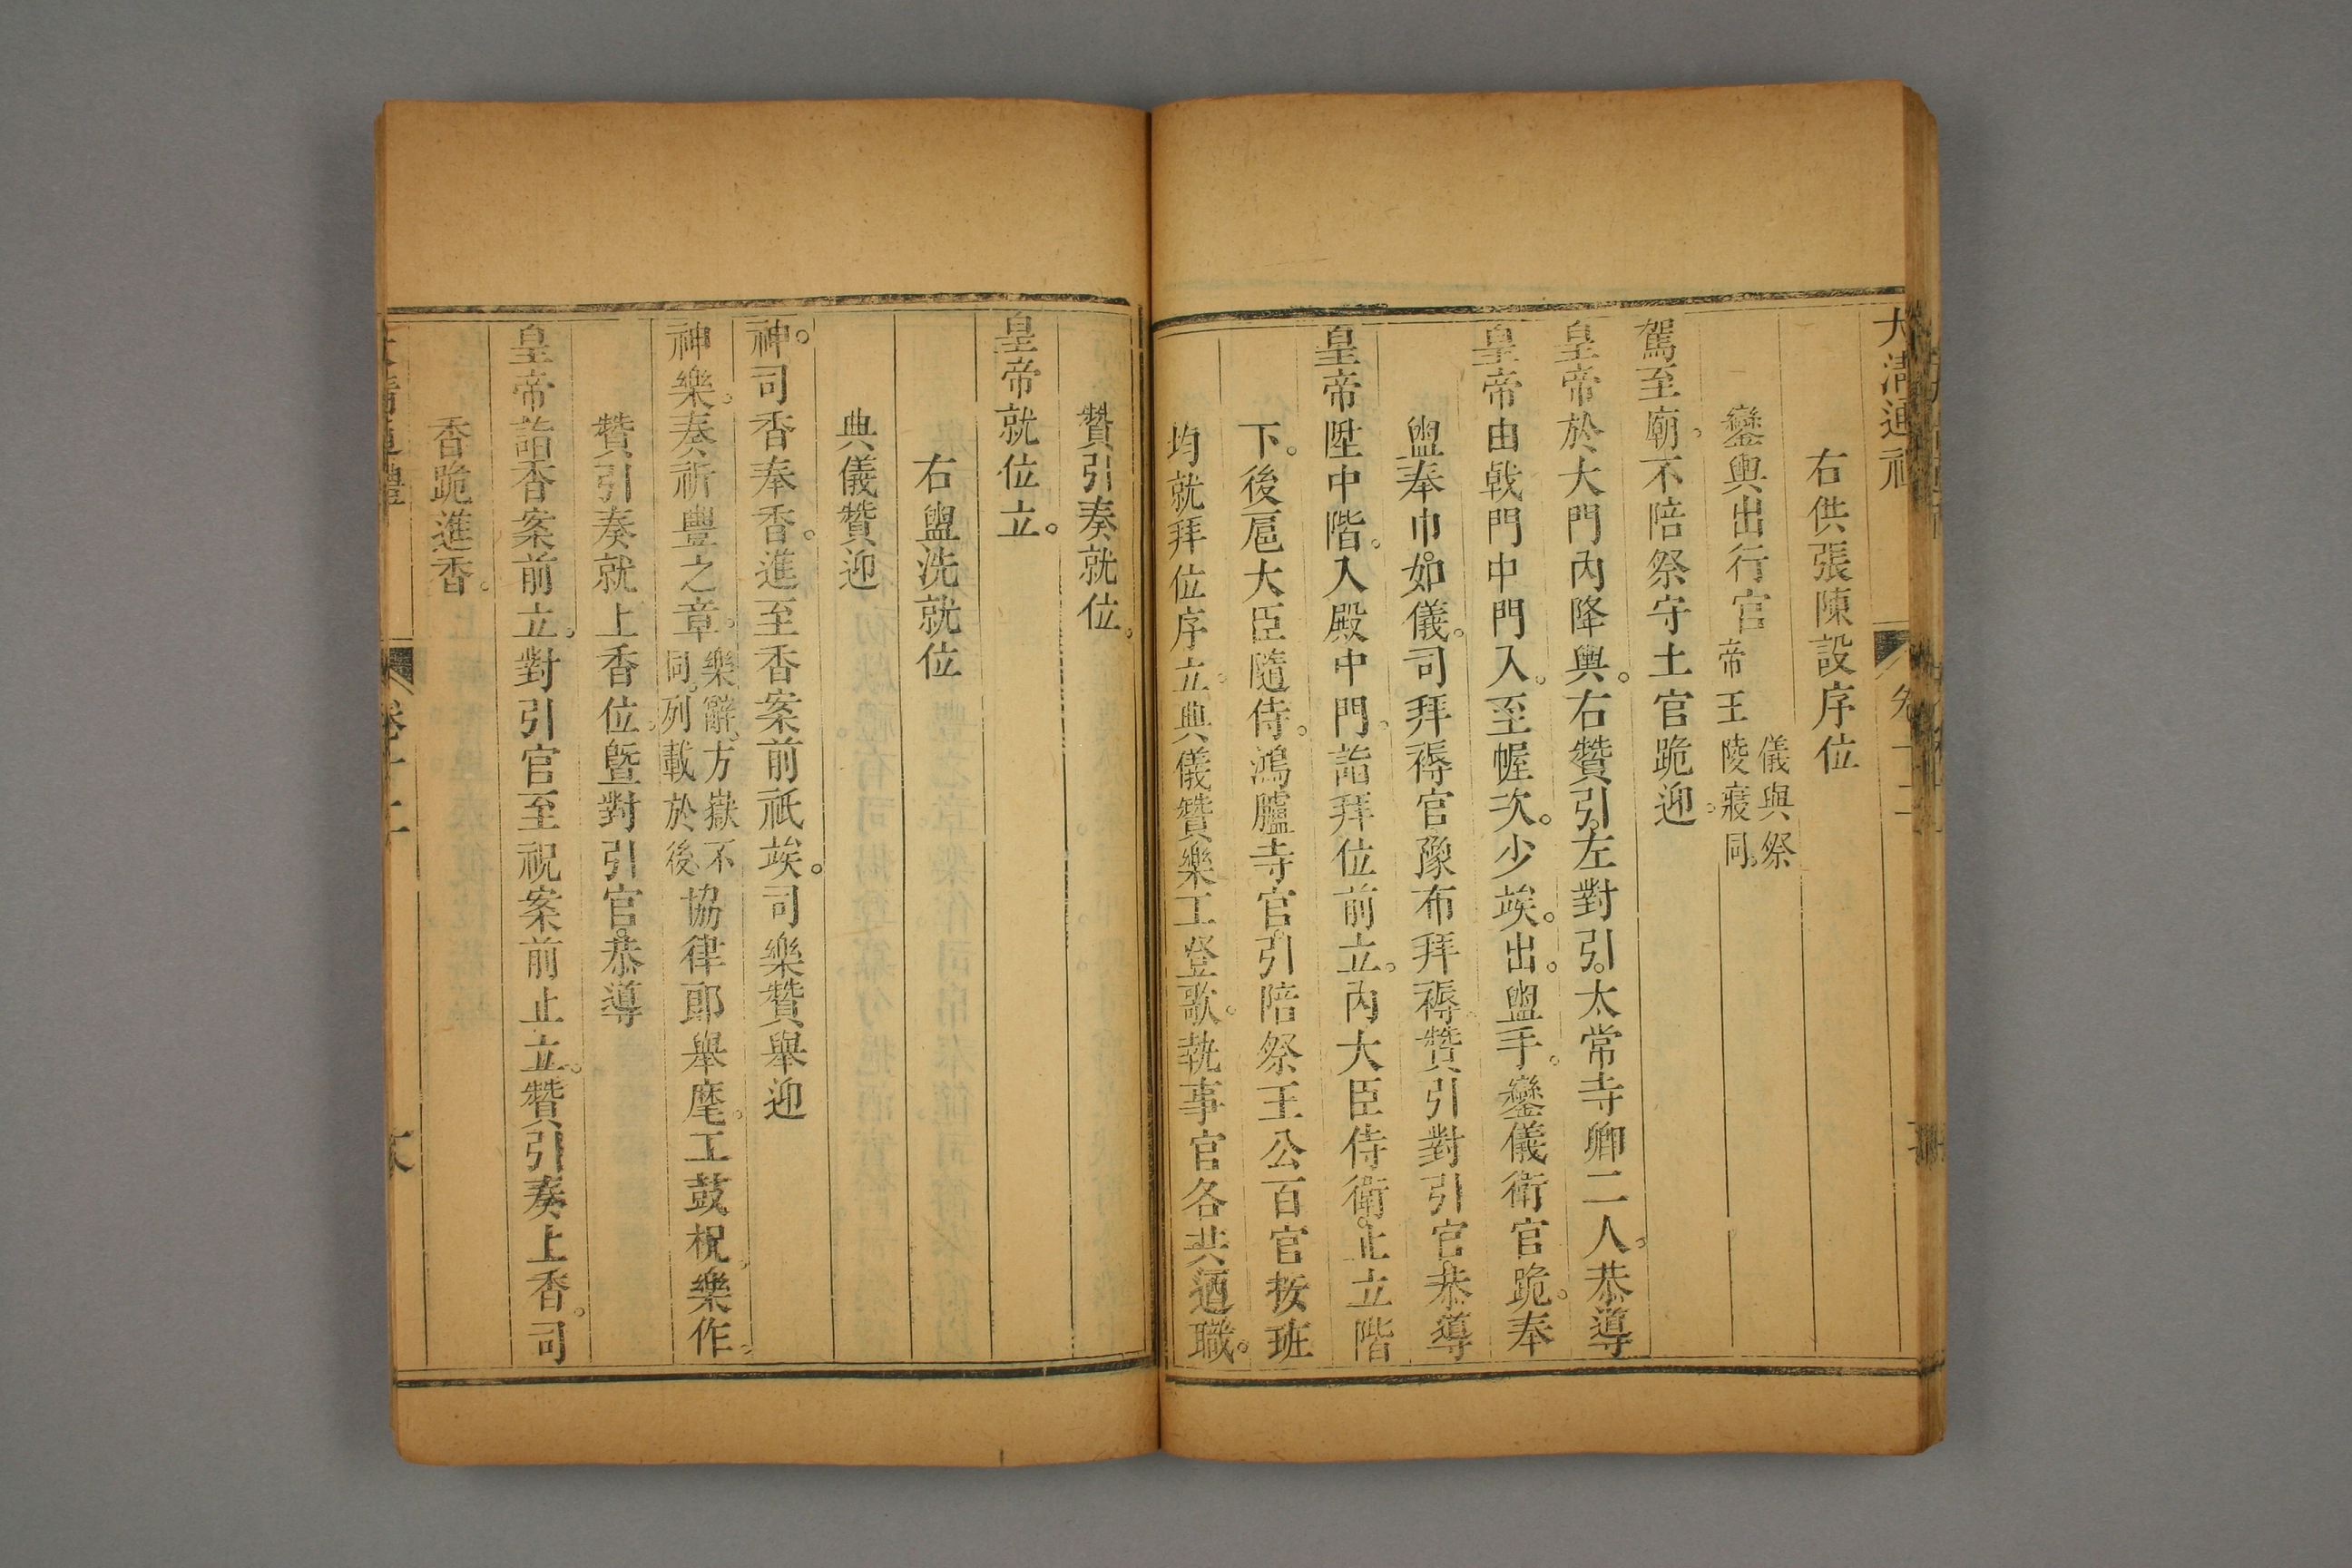 大清通禮 卷十二
右供張陳設序位
鑾輿出行宮帝王陵寢同。儀與祭
駕至廟。不陪祭守土官跪迎。
皇帝於大門內降輿。右贊引。左對引。太常寺卿二人。恭導
皇帝由戟門中門入。至幄次。少竢。出。盥手。鑾儀衛官跪。奉
盥奉巾如儀。司拜褥官豫布拜褥。贊引對引官。恭導
皇帝陞中階。入殿中門。詣拜位前立。內大臣侍衛。止立階
下。後扈大臣隨侍。鴻臚寺官。引陪祭王公百官按班
均就拜位序立。典儀贊樂工登歌。執事官各共迺職。
贊引奏就位。
皇帝就位立。
右盥洗就位
典儀贊迎
神。司香奉香。進至香案前祇竢。司樂贊舉迎
神樂。奏祈豐之章。樂辭。方嶽不同。列載於後。協律郎舉麾。工鼓柷。樂作。
贊引奏就上香位。曁對引官。恭導
皇帝詣香案前立。對引官至祝案前止立。贊引奏上香。司
香跪進香。